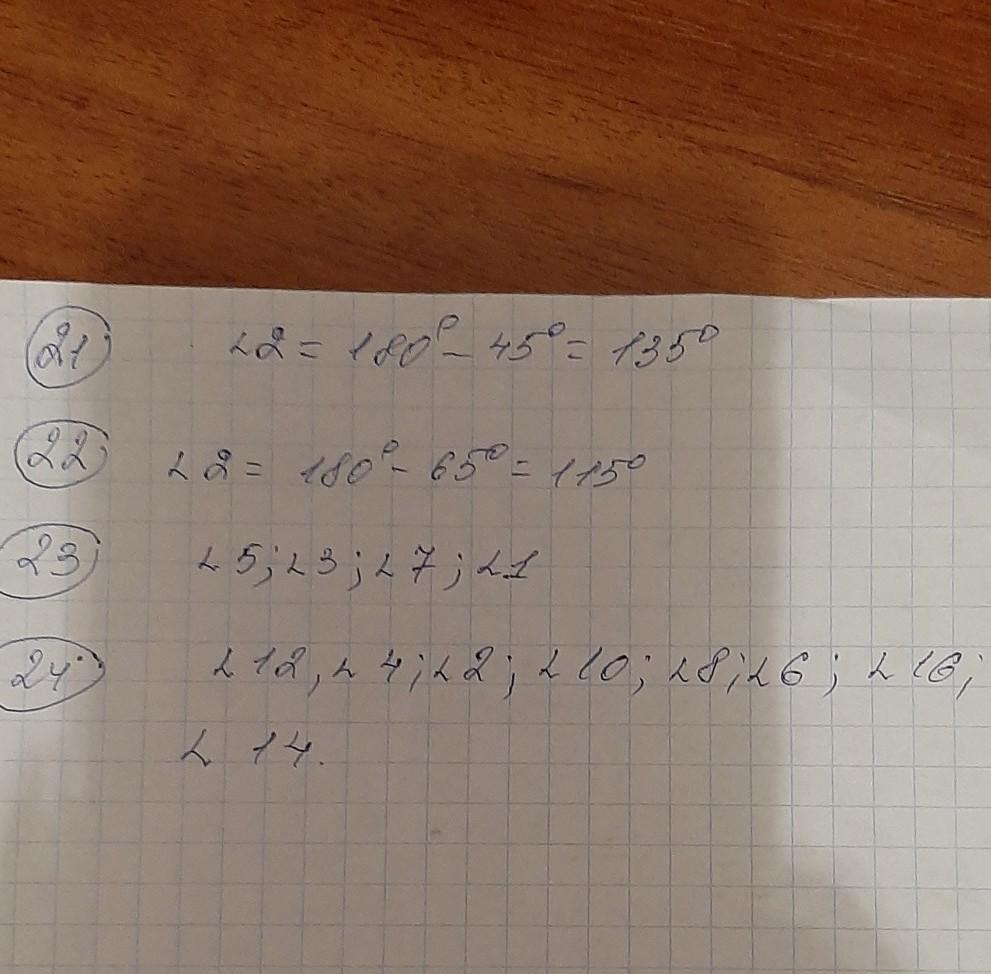 21 ∠2 = 180° - 45° = 135°
22 ∠2 = 180° - 65° = 115°
23 ∠5; ∠3; ∠7; ∠1
24 ∠12, ∠4; ∠2; ∠10; ∠8; ∠6; ∠16;
∠14.